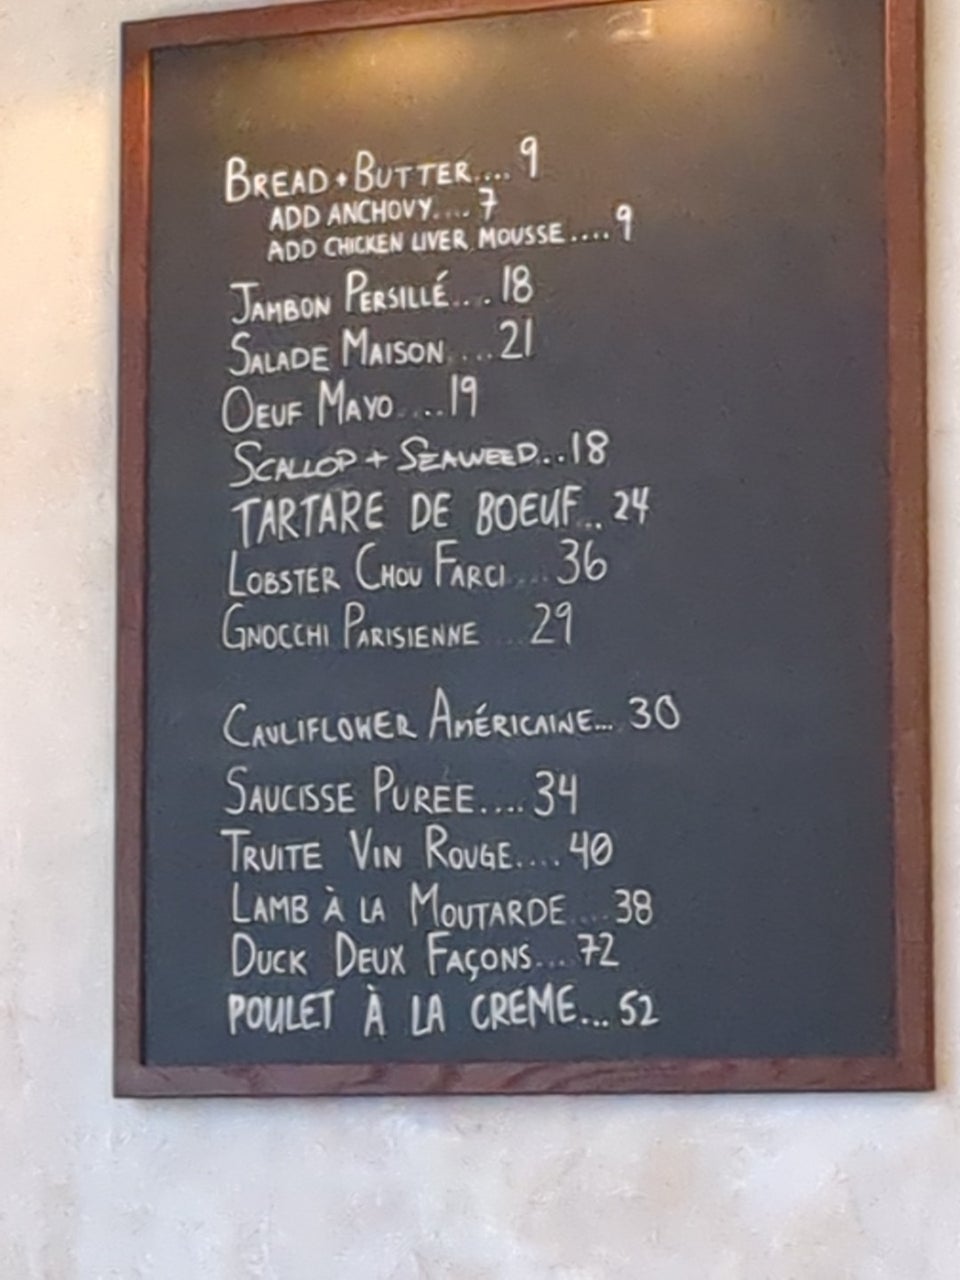 BREAD + BUTTER.... 9
ADD ANCHOVY.... 7
ADD CHICKEN LIVER MOUSSE.... 9
JAMBON PERSILLÉ.... 18
SALADE MAISON....21
OEUF MAYO....19
SCALLOP + SEAWEED...18
TARTARE DE BOEUF... 24
LOBSTER CHOU FARCI...36
GNOCCHI PARISIENNE ...29
CAULIFLOWER AMÉRICAINE... 30
SAUCISSE PURÉE....34
TRUITE VIN ROUGE....40
LAMB À LA MOUTARDE...38
DUCK DEUX FAÇONS...72
POULET À LA CREME...52